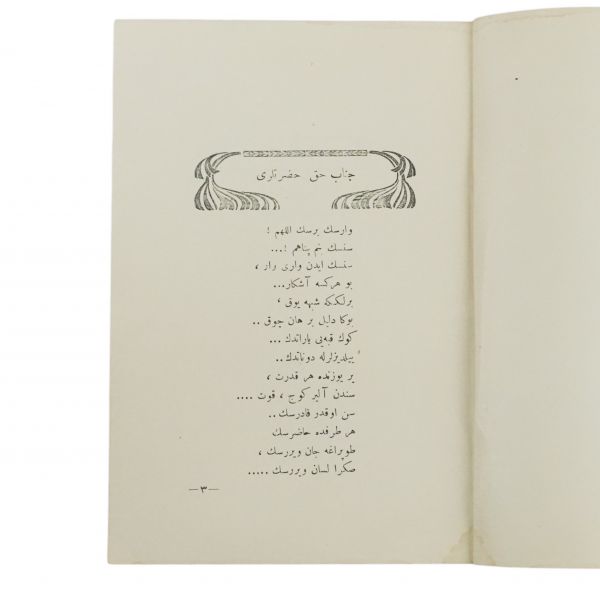 جناب حق حضرتلری
وارسك برسك اللهم !
سنسك نم پناهم !...
سنسك ايدن واری وار ،
بو هركسه آشكار...
برلككه شبهه يوق ،
بوكا دليل بر هان چوق ..
كوك قبه‌يی ياراتدك ...
ييلديزلرله دوناتدك..
ير يوزنده هر قدرت ،
سندن آلير كوج ، قوت ....
سن اوقدر قادرسك ..
هر طرفده حاضرسك
طوپراغه جان ويررسك ،
صكرا لسان ويررسك .....
—٣—